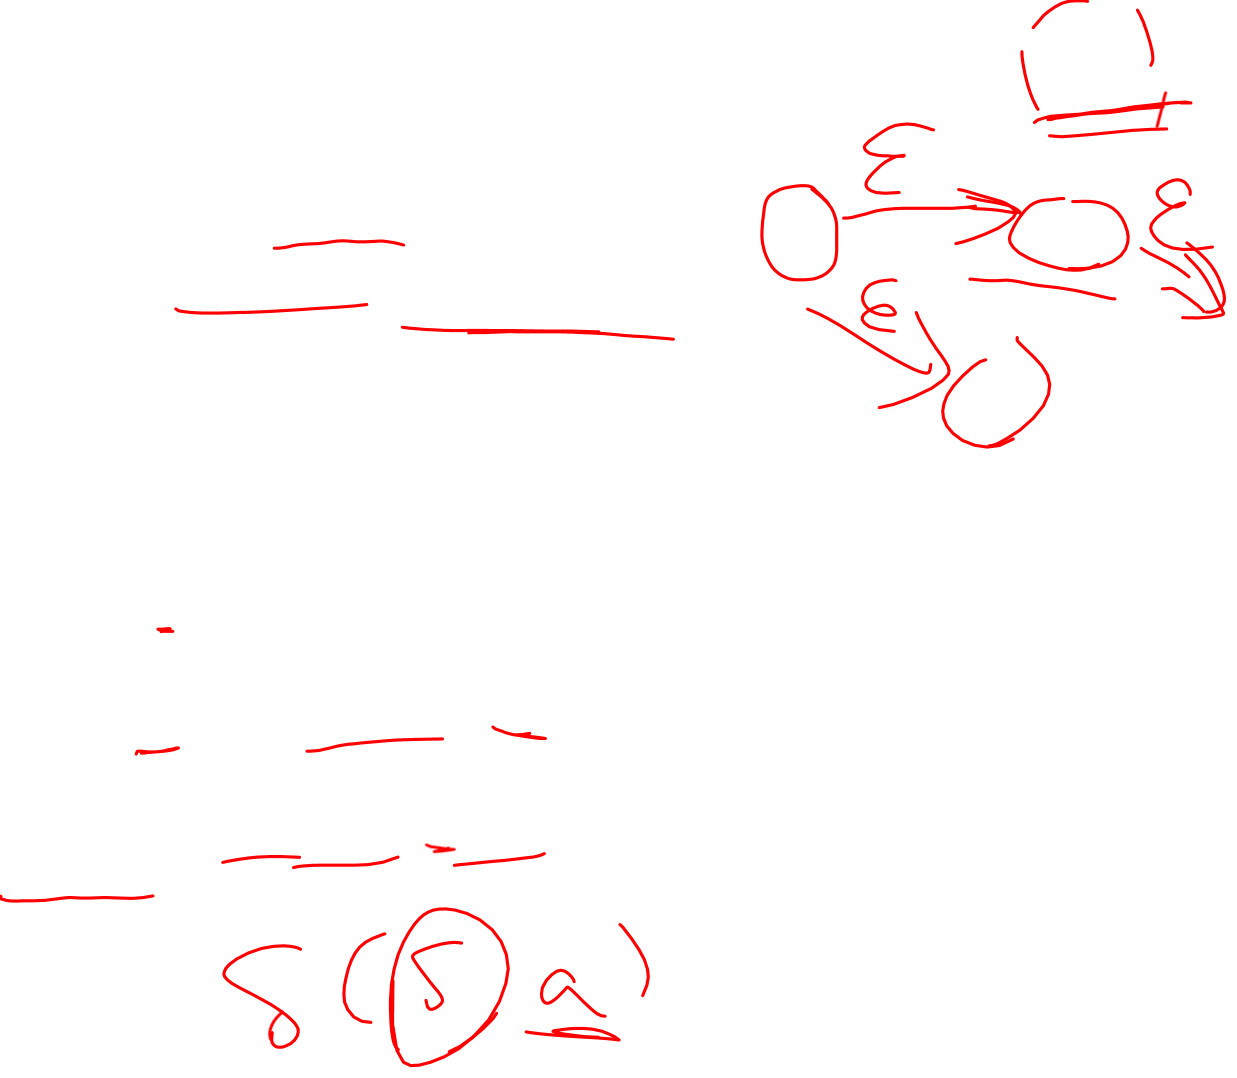 ε
ε
ε
δ(δ a)